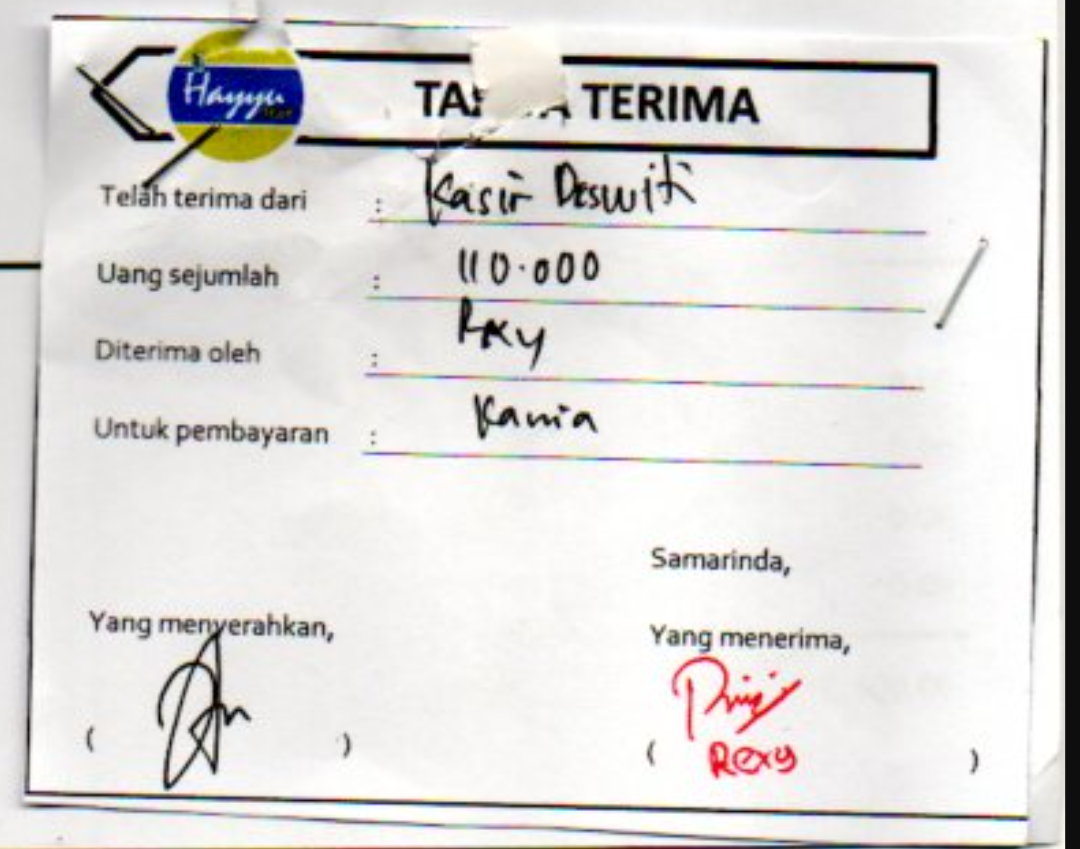 Hayyu Mart
TA TERIMA
Telah terima dari : Kasir Deswiti
Uang sejumlah : 110.000
Diterima oleh :
Untuk pembayaran : Kania
Samarinda,
Yang menyerahkan,
Yang menerima,
( )
( Rexy )